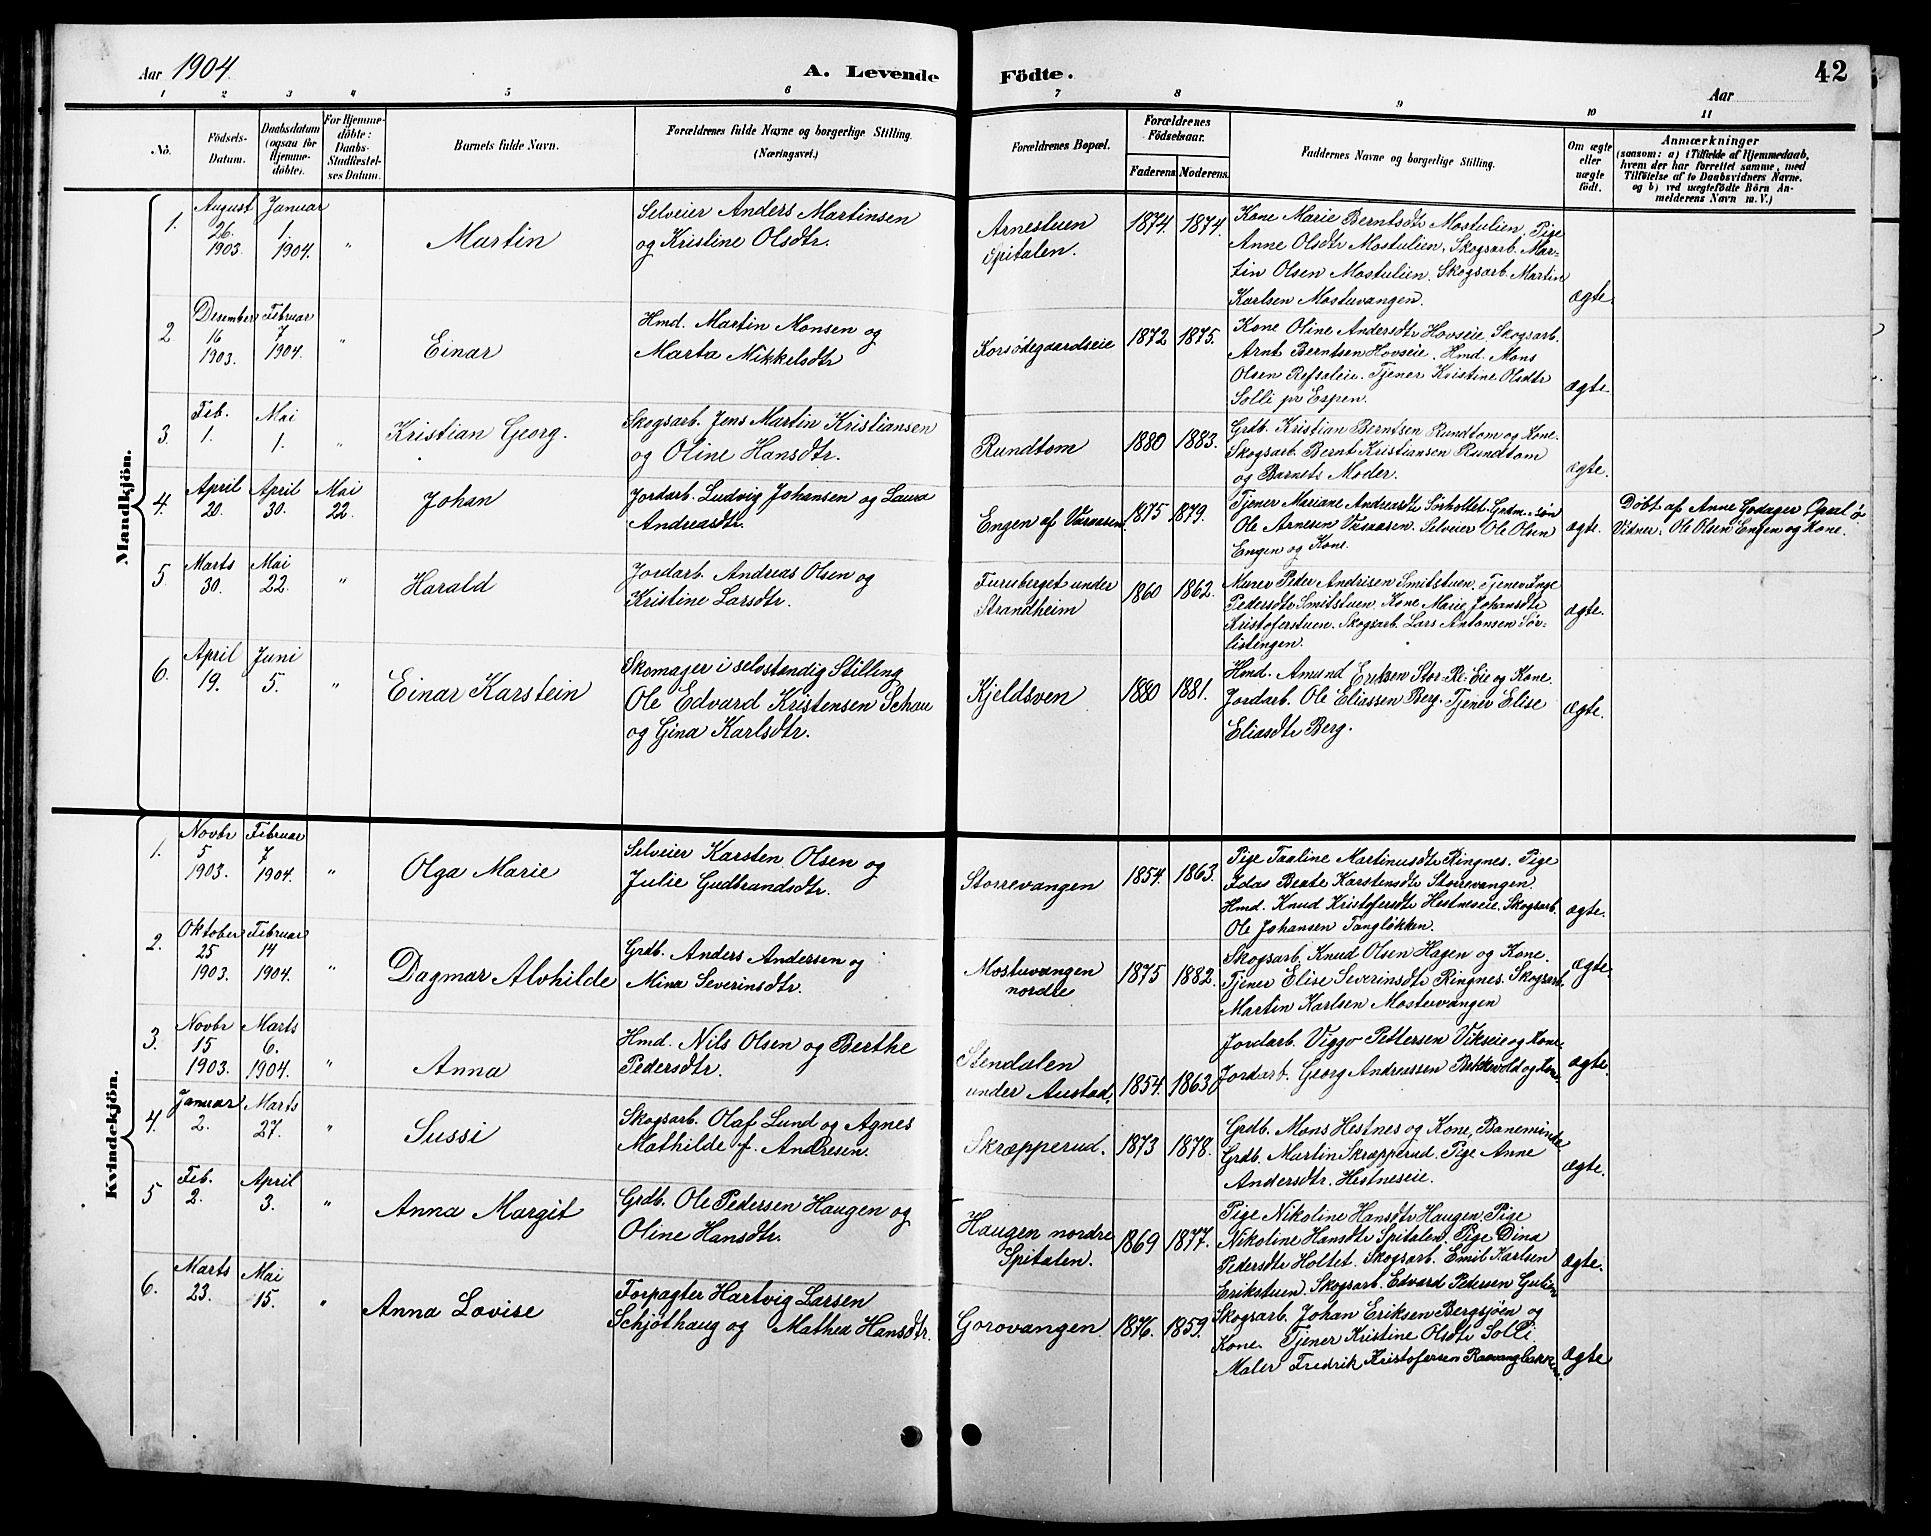 Aar 1904.
A. Levende Födte.
42
Aar
1 2 3 4 5 6 7 8 9 10 11
No.
Födsels-
Datum.
Daabsdatum
(ogsaa for
Hjemme-
döbte).
For Hjemme-
döbte:
Daabs-
Stadfæstel-
ses Datum.
Barnets fulde Navn.
Forældrenes fulde Navne og borgerlige Stilling.
(Næringsvei.)
Forældrenes Bopæl.
Forældrenes
Födselsaar.
Faderens. Moderens.
Faddernes Navne og borgerlige Stilling.
Om ægte
eller
uægte
födt.
Anmærkninger
(saasom: a) i Tilfælde af Hjemmedaab,
hvem der har forrettet samme, med
Tilföielse af to Daabsvidners Navne.
og b) ved uægtefödte Börn An-
melderens Navn m. V.)
Mandkjön.
1.
August
26.
1903.
Januar
1.
1904.
"
Martin
Selveier Anders Martinsen
og Kristine Olsdtr.
Arnestuen
Spitalen.
1874. 1874.
Kone Marie Berntsdtr Mostulien. Pige
Anne Olsdtr Mostulien. Skogsarb. Mar-
tin Olsen Mostulien. Skogsarb. Martin
Karlsen Mostuvangen.
ægte.
2
Desember
16
1903.
Februar
7
1904.
"
Einar
Hmd. Martin Monsen og
Marta Mikkelsdtr
Korsødegaardseie
1872 1875.
Kone Oline Andersdtr Hovseie. Skogsarb.
Arnt Berntsen Hovseie. Hmd. Mons
Olsen Refsaleie. Tjener Kristine Olsdtr
Solli pr Espen.
ægte.
3.
Feb.
1.
Mai
1.
"
Kristian Georg.
Skogsarb. Jens Martin Kristiansen
og Oline Hansdtr.
Rundtom
1880 1883.
Grdb. Kristian Berntsen Rundtom og Kone.
Skogsarb. Bernt Kristiansen Rundtom
og Barnets Moder.
ægte.
4.
April
20.
April
30.
Mai
22.
Johan
Jordarb. Ludvig Johansen og Laura
Andreasdtr.
Engen af Vaaasen.
1875 1879.
Tjener Mariane Andreasdtr Sørholtet. Grdm. søn
Ole Arnesen Vaaasen. Selveier Ole Olsen
Engen og Kone.
ægte.
Døbt af Anne Godager Opsal ø
Vidner: Ole Olsen Engen og Kone.
5.
Marts
30.
Mai
22.
"
Harald
Jordarb. Andreas Olsen og
Kristine Larsdtr.
Furuberget under
Strandheim
1860 1862.
Murer Peder Andrisen Smitstuen. Tjener Inge
Pedersdtr Smitstuen. Kone Marie Johansdtr
Kristoferstuen. Skogsarb. Lars Antonsen Sør-
listengen.
ægte.
6.
April
19.
Juni
5.
"
Einar Karstein
Skomager i selvstendig Stilling
Ole Edvard Kristensen Schau
og Gina Karlsdtr.
Kjeldsven
1880 1881.
Hmd. Amund Eriksen Stor-Re-Eie og Kone.
Jordarb. Ole Eliassen Berg. Tjener Elise
Eliasdtr Berg.
ægte.
Kvindekjön.
1.
Novbr
5
1903.
Februar
7
1904.
"
Olga Marie
Selveier Karsten Olsen og
Julie Gudbrandsdtr.
Storrevangen
1854. 1863.
Pige Taaline Martinusdtr Ringnes. Pige
Idas Beate Karstensdtr Storrevangen.
Hmd. Knud Kristofersdtr Hestneseie. Skogsarb.
Ole Johansen Tangløkken.
ægte.
2.
Oktober
25
1903.
Februar
14
1904.
"
Dagmar Alvhilde
Grdb. Anders Andersen og
Mina Severinsdtr.
Mostuvangen
nordre
1875 1882.
Skogsarb. Knud Olsen Hagen og Kone.
Tjener Elise Severinsdtr Ringnes. Skogsarb.
Martin Karlsen Mostuvangen
ægte.
3.
Novbr
15
1903.
Marts
6.
1904.
"
Anna
Hmd. Nils Olsen og Berthe
Pedersdtr.
Stendalen
under Austad.
1854. 1863.
Jordarb. Viggo Pettersen Vikseie og Kone.
Jordarb. Georg Andreassen Bekkevold og Kone.
ægte.
4.
Januar
2.
Marts
27.
"
Sussi
Skogsarb. Olaf Lund og Agnes
Mathilde f. Andresen.
Skræpperud.
1873 1878.
Grdb. Mons Hestnes og Kone, Baneminde
Grdb. Martin Skræpperud. Pige Anne
Andersdtr. Hestneseie.
ægte.
5
Feb.
2.
April
3.
"
Anna Margit
Grdb. Ole Pedersen Haugen og
Oline Hansdtr.
Haugen nordre
Spitalen.
1869 1877.
Pige Nikoline Hansdtr Haugen. Pige
Nikoline Hansdtr Spitalen. Pige Dina
Pedersdtr Holtet. Skogsarb. Emil Karlsen
Erikstuen. Skogsarb. Edvard Pedersen Gulien
ægte.
6.
Marts
23.
Mai
15.
"
Anna Lovise
Forpagter Hartvig Larsen
Schjøthaug og Mathea Hansdtr.
Gorovangen.
1876. 1859.
Skogsarb. Johan Eriksen Bergsjøen og
Kone. Tjener Kristine Olsdtr Solli
Maler Fredrik Kristofersen Raavangbakken.
ægte.